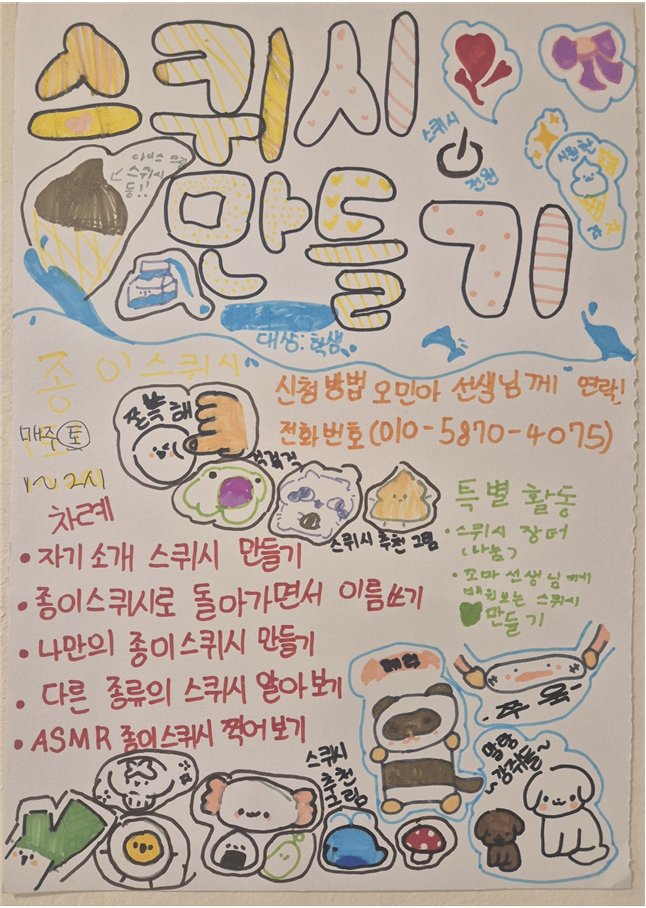 스퀴시
만들기
스퀴시
전원
아이스크림
스퀴시
등!!
대상: 학생
종이스퀴시
신청 방법 오민아 선생님께 연락!
전화번호(010-5870-4075)
매주 토
1~2시
쫀쫀해
스퀴시 추천 그림
차례
• 자기소개 스퀴시 만들기
• 종이스퀴시로 돌아가면서 이름쓰기
• 나만의 종이스퀴시 만들기
• 다른 종류의 스퀴시 알아보기
• ASMR 종이스퀴시 찍어보기
특별 활동
• 스퀴시 장터
나눔
• 꼬마 선생님께
배워보는 스퀴시
만들기
쭈욱
말랑
강쥐들~
스퀴시
추천
그림